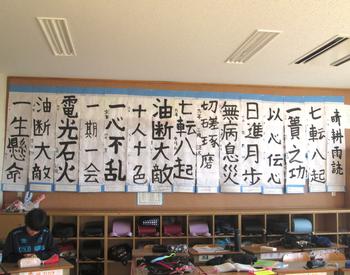 晴耕雨読
七転八起
一簣之功
以心伝心
日進月歩
無病息災
切磋琢磨
七転八起
油断大敵
十人十色
一心不乱
一期一会
電光石火
油断大敵
一生懸命